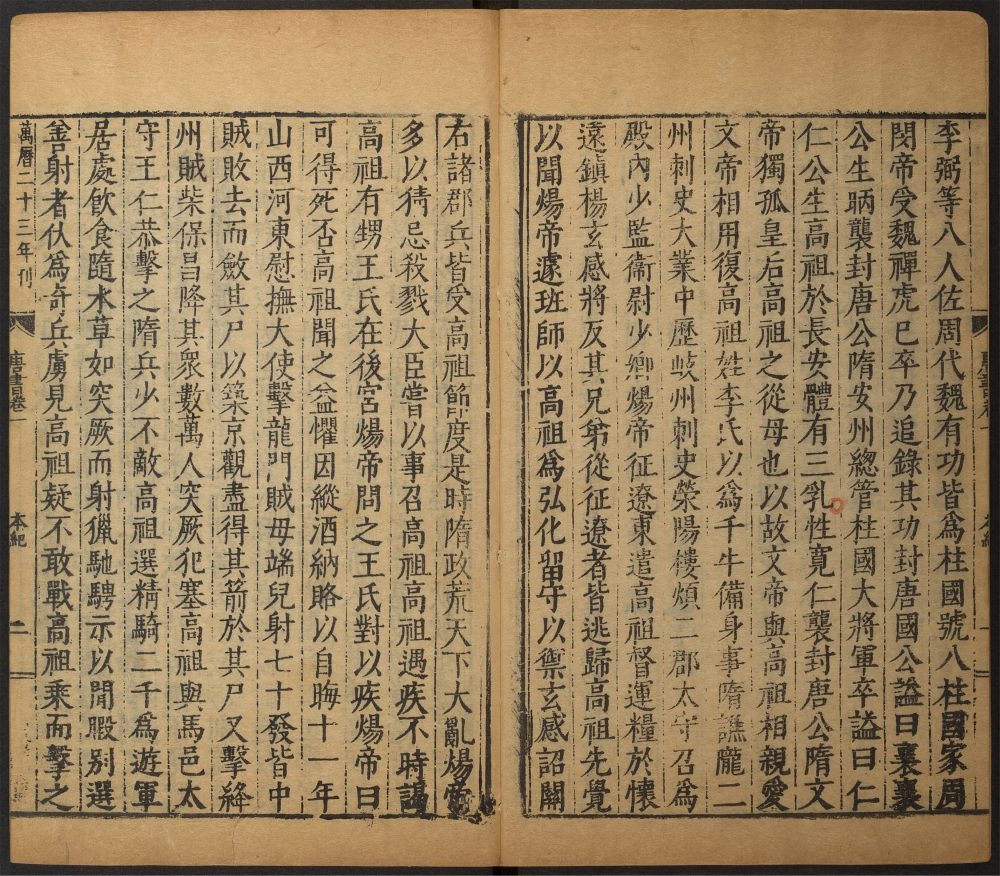 李弼等八人佐周代魏有功皆爲柱國號八柱國家周
閔帝受魏禪虎已卒乃追錄其功封唐國公謚曰襄襄
公生昞襲封唐公隋安州總管柱國大將軍卒謚曰仁
仁公生高祖於長安體有三乳性寬仁襲封唐公隋文
帝獨孤皇后高祖之從母也以故文帝與高祖相親愛
文帝相周復高祖姓李氏以爲千牛備身事隋譙隴二
州刺史大業中歷岐州刺史滎陽樓煩二郡太守召爲
殿內少監衛尉少卿煬帝征遼東遣高祖督運糧於懷
遠鎮楊玄感將反其兄弟從征遼者皆逃歸高祖先覺
以聞煬帝遽班師以高祖爲弘化留守以禦玄感詔關
右諸郡兵皆受高祖節度是時隋政荒天下大亂煬帝
多以猜忌殺戮大臣嘗以事召高祖高祖遇疾不時謁
高祖有甥王氏在後宮煬帝問之王氏對以疾煬帝曰
可得死否高祖聞之益懼因縱酒納賂以自晦十一年
山西河東慰撫大使擊龍門賊毋端兒射七十發皆中
賊敗去而斂其尸以築京觀盡得其箭於其尸又擊絳
州賊柴保昌降其衆數萬人突厥犯塞高祖與馬邑太
守王仁恭擊之隋兵少不敵高祖選精騎二千爲遊軍
居處飲食隨水草如突厥而射獵馳騁示以閒暇別選
善射者伏爲奇兵虜見高祖疑不敢戰高祖乘而擊之
萬曆二十三年刊
唐書卷一
本紀
二